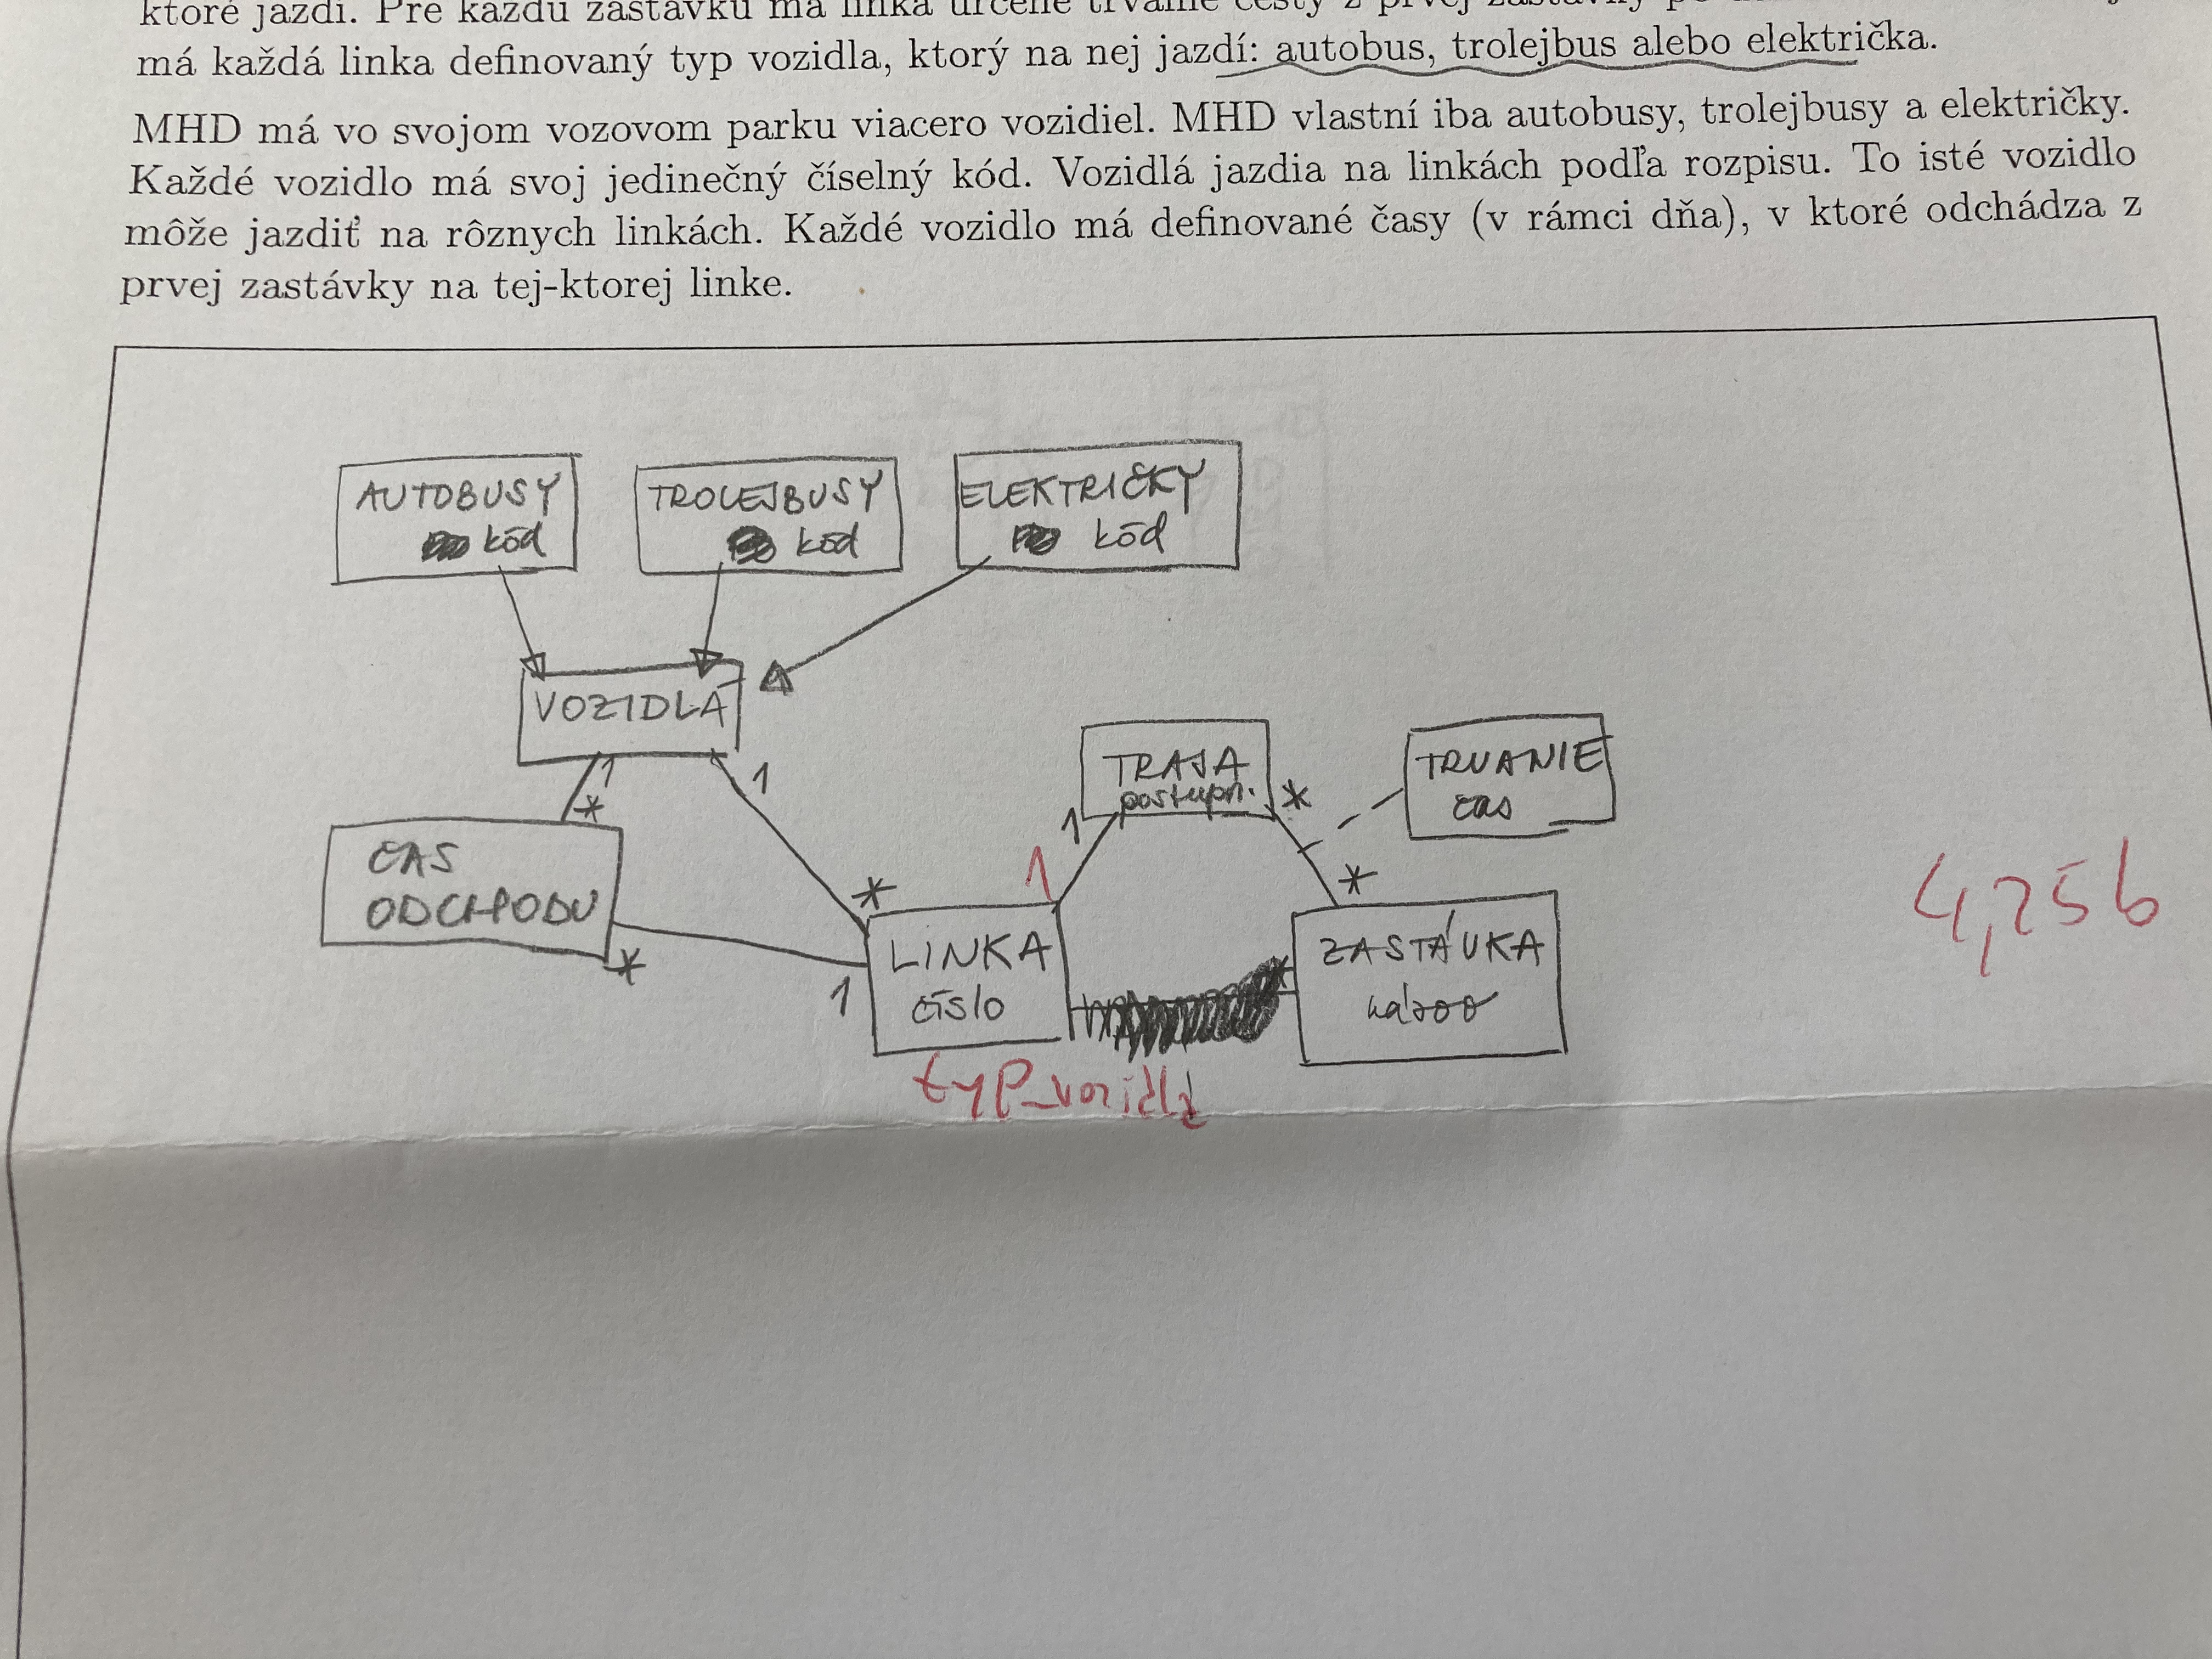 ktoré jazdí. Pre každú zastávku má linka určené trvanie cesty z prvej zastávky po
má každá linka definovaný typ vozidla, ktorý na nej jazdí: autobus, trolejbus alebo električka.
MHD má vo svojom vozovom parku viacero vozidiel. MHD vlastní iba autobusy, trolejbusy a električky.
Každé vozidlo má svoj jedinečný číselný kód. Vozidlá jazdia na linkách podľa rozpisu. To isté vozidlo
môže jazdiť na rôznych linkách. Každé vozidlo má definované časy (v rámci dňa), v ktoré odchádza z
prvej zastávky na tej-ktorej linke.
AUTOBUSY
kód
TROLEJBUSY
kód
ELEKTRIČKY
kód
VOZIDLÁ
1
1
*
TRASA
postupn.
*
1
TRVANIE
čas
ČAS
ODCHODU
*
1
*
1
*
LINKA
číslo
ZASTÁVKA
názov
typ_vozidla
4,25b